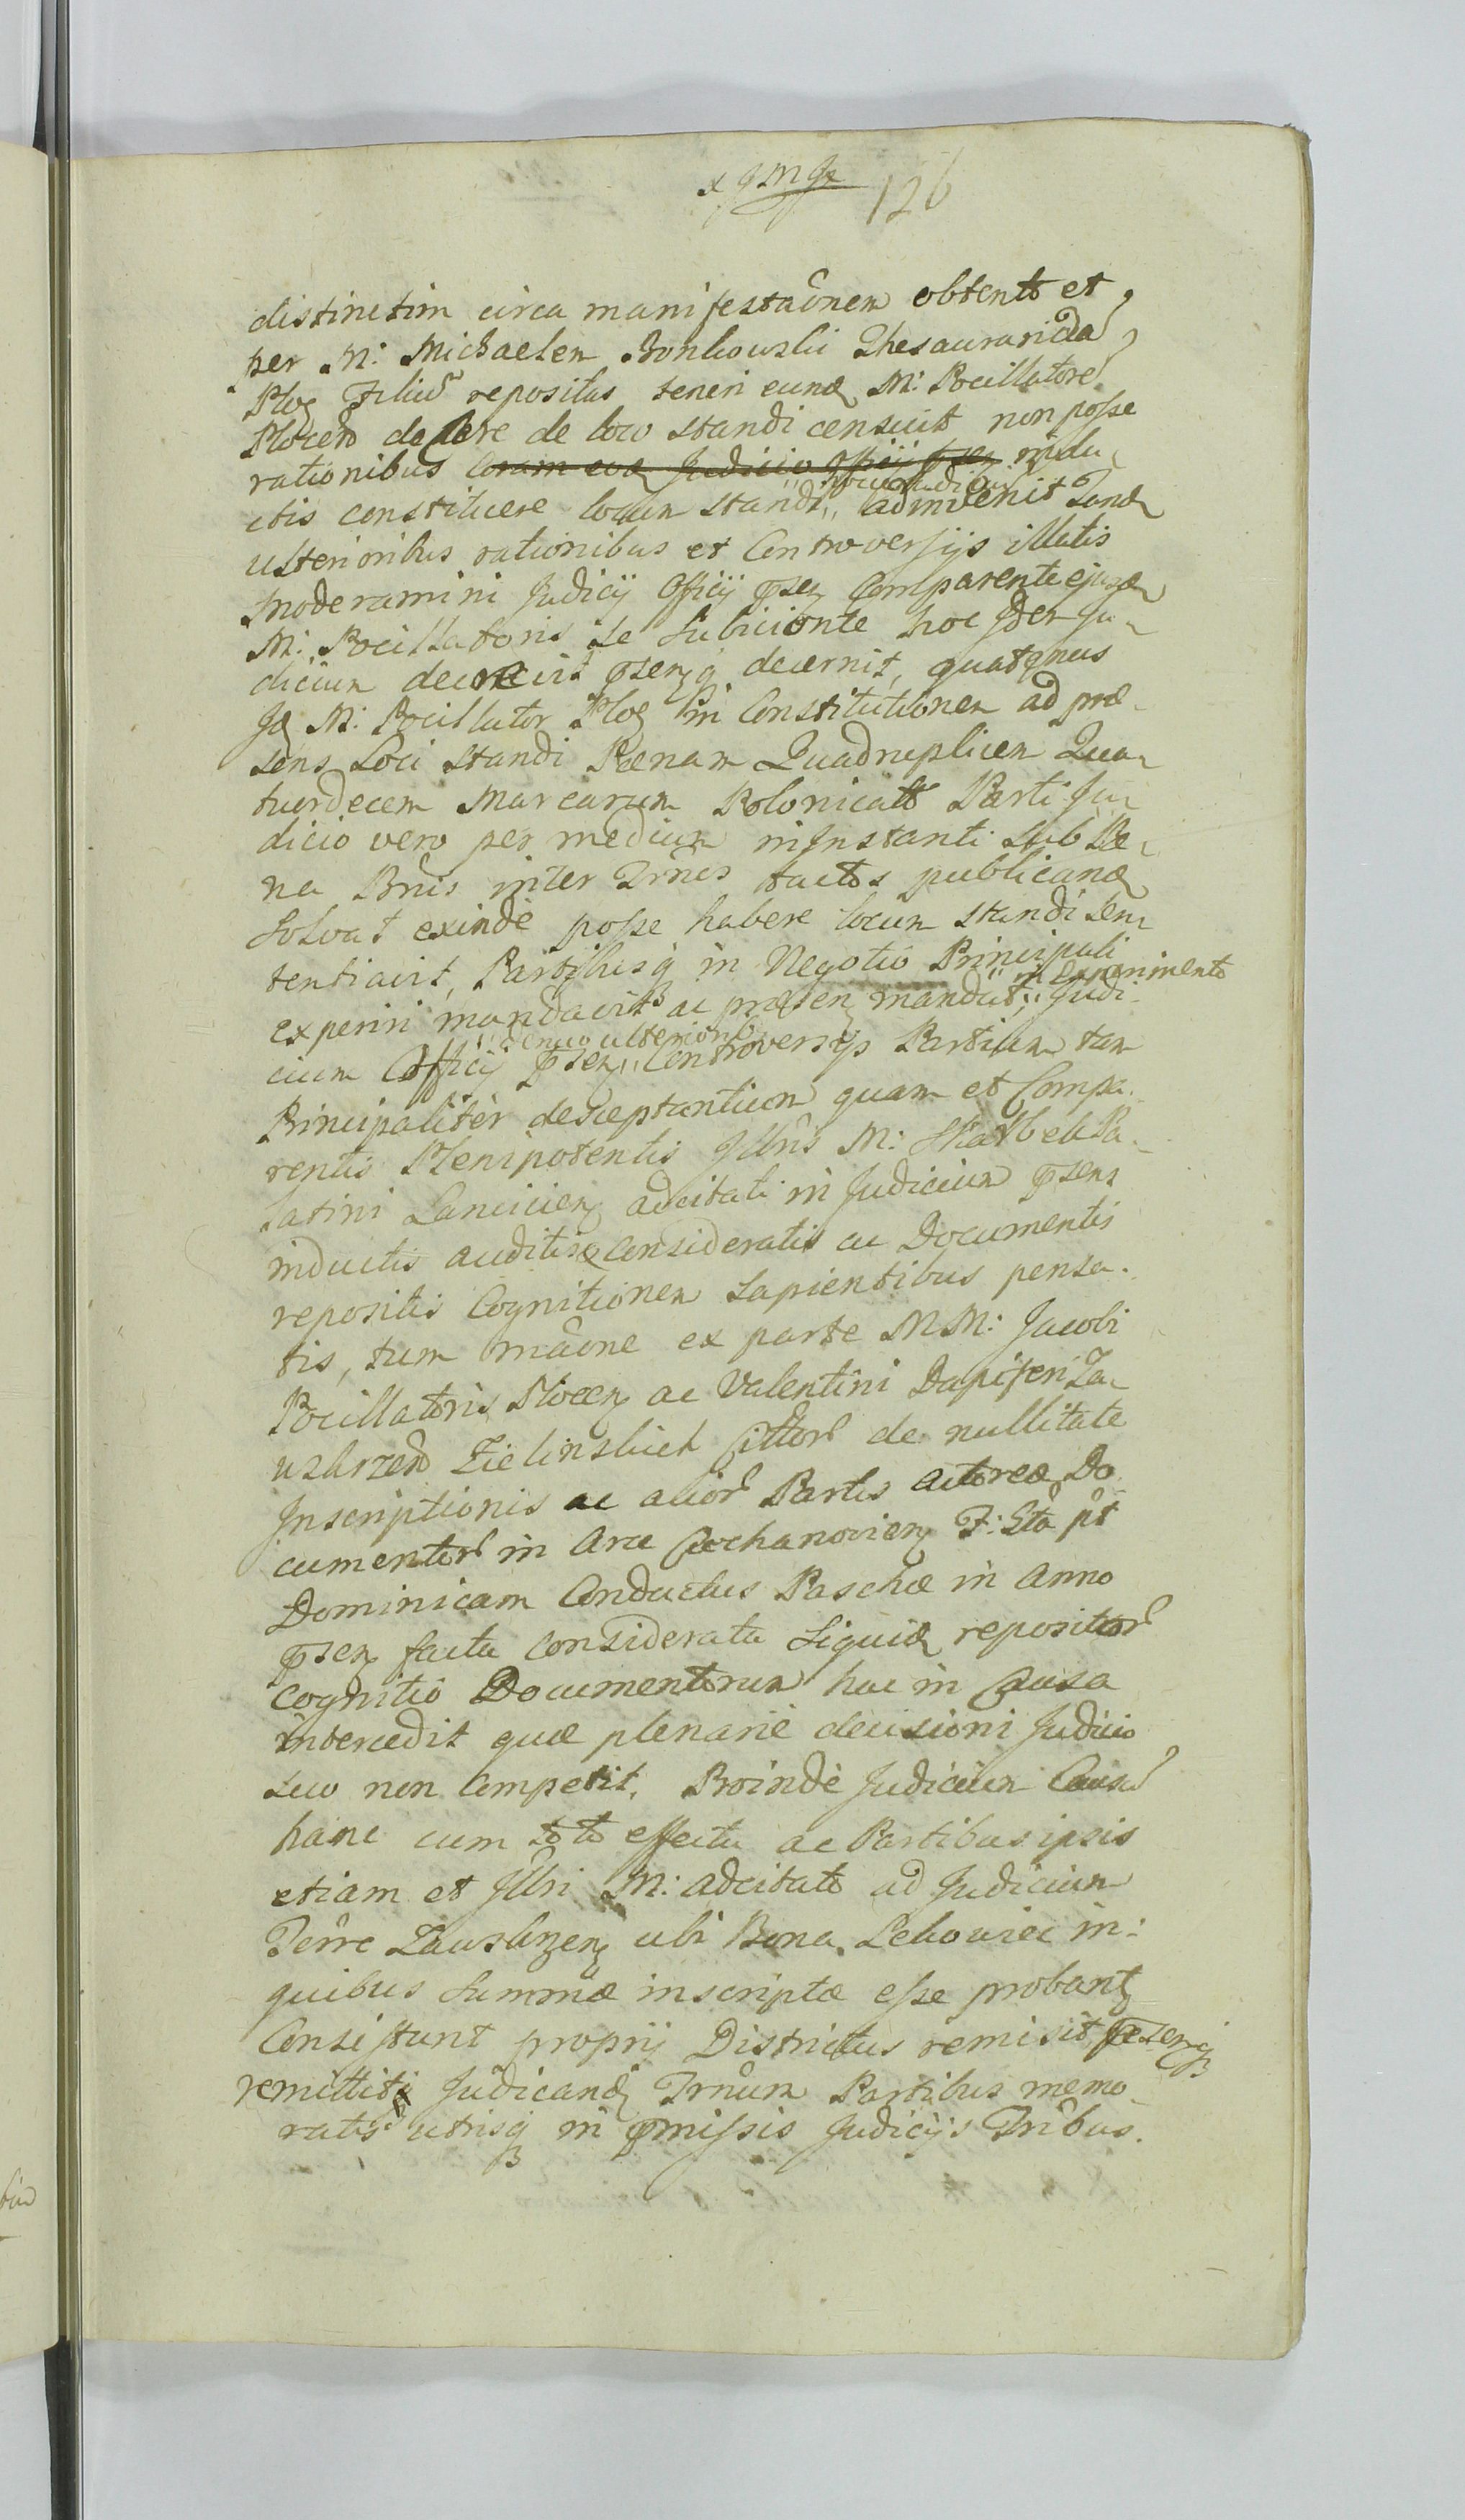 126
distinctim circa manifestaõnem obtento et
per M: Michaelem Bonkowski Thesauraridã
Ploc Filiũ repositas teneri eund M: Pocillatorẽ
Plocen de loco standi censuit non posse
rationibus coram eod Judicio Officij psen indu-
ctis constituere locum standi adinvenit Tand
ulterioribus rationibus et Controversijs illatis
moderamini Judicij Officij psen Comparente ejusd
M: Pocillatoris se subiicionte hoc Idem Ju-
dicium decrevit psenq decernit, quatenus
Is M: Pocillator Ploc in Constitutionem ad præ-
sens Loci standi Pœnam Quadruplicem Qua-
tuordecem Marcarum Polonicalt Parti Ju-
dicio vero per medium in Instanti sub Pœ-
na Bnis inter Trnos tactos publicand
solvat exindè posse habere locum standi sen-
tentiavit, Partibusq in Negotio Principali
experiri mandavit ac præsen mandat, in experimento Judi-
cium Officij psen denuo ulteriorib Controversijs Partium tam
Principalitèr desceptantium quam et Compa-
rentis Plenipotentis Illris M: Skarbek Pa-
latini Lancicien adcitati in Judicium psens
inductis auditis consideratis ac Documentis
repositis Cognitionem sapientibus pensa-
tis, tum mãone ex parte M M: Jacobi
Pocillatoris Plocen ac Valentini Dapiferi Za-
uskrzen Zielinskich Cittor de nullitate
Inscriptionis ac alior Partis actoreæ Do-
cumentor in Arce Ciechanovien F: Sta pt
Dominicam Conductus Paschæ in Anno
psen facta considerata siquid repositor
Cognitio Documentorum hac in Causa
intercedit quæ plenariè decisioni Judicio
suo non competit. Proindè Judicium Causã
hanc cum toto effectu ac Partibus ipsis
etiam et Illri M: adcitato ad Judicium
Terre Zauskrzen ubi Bona Lekowiec in-
quibus summæ inscriptæ esse probant
Consistunt proprij Districtus remisit psenq
remittit Judicand Trnum Partibus memo-
ratis utrisq in pmissis Judicijs Tribus.